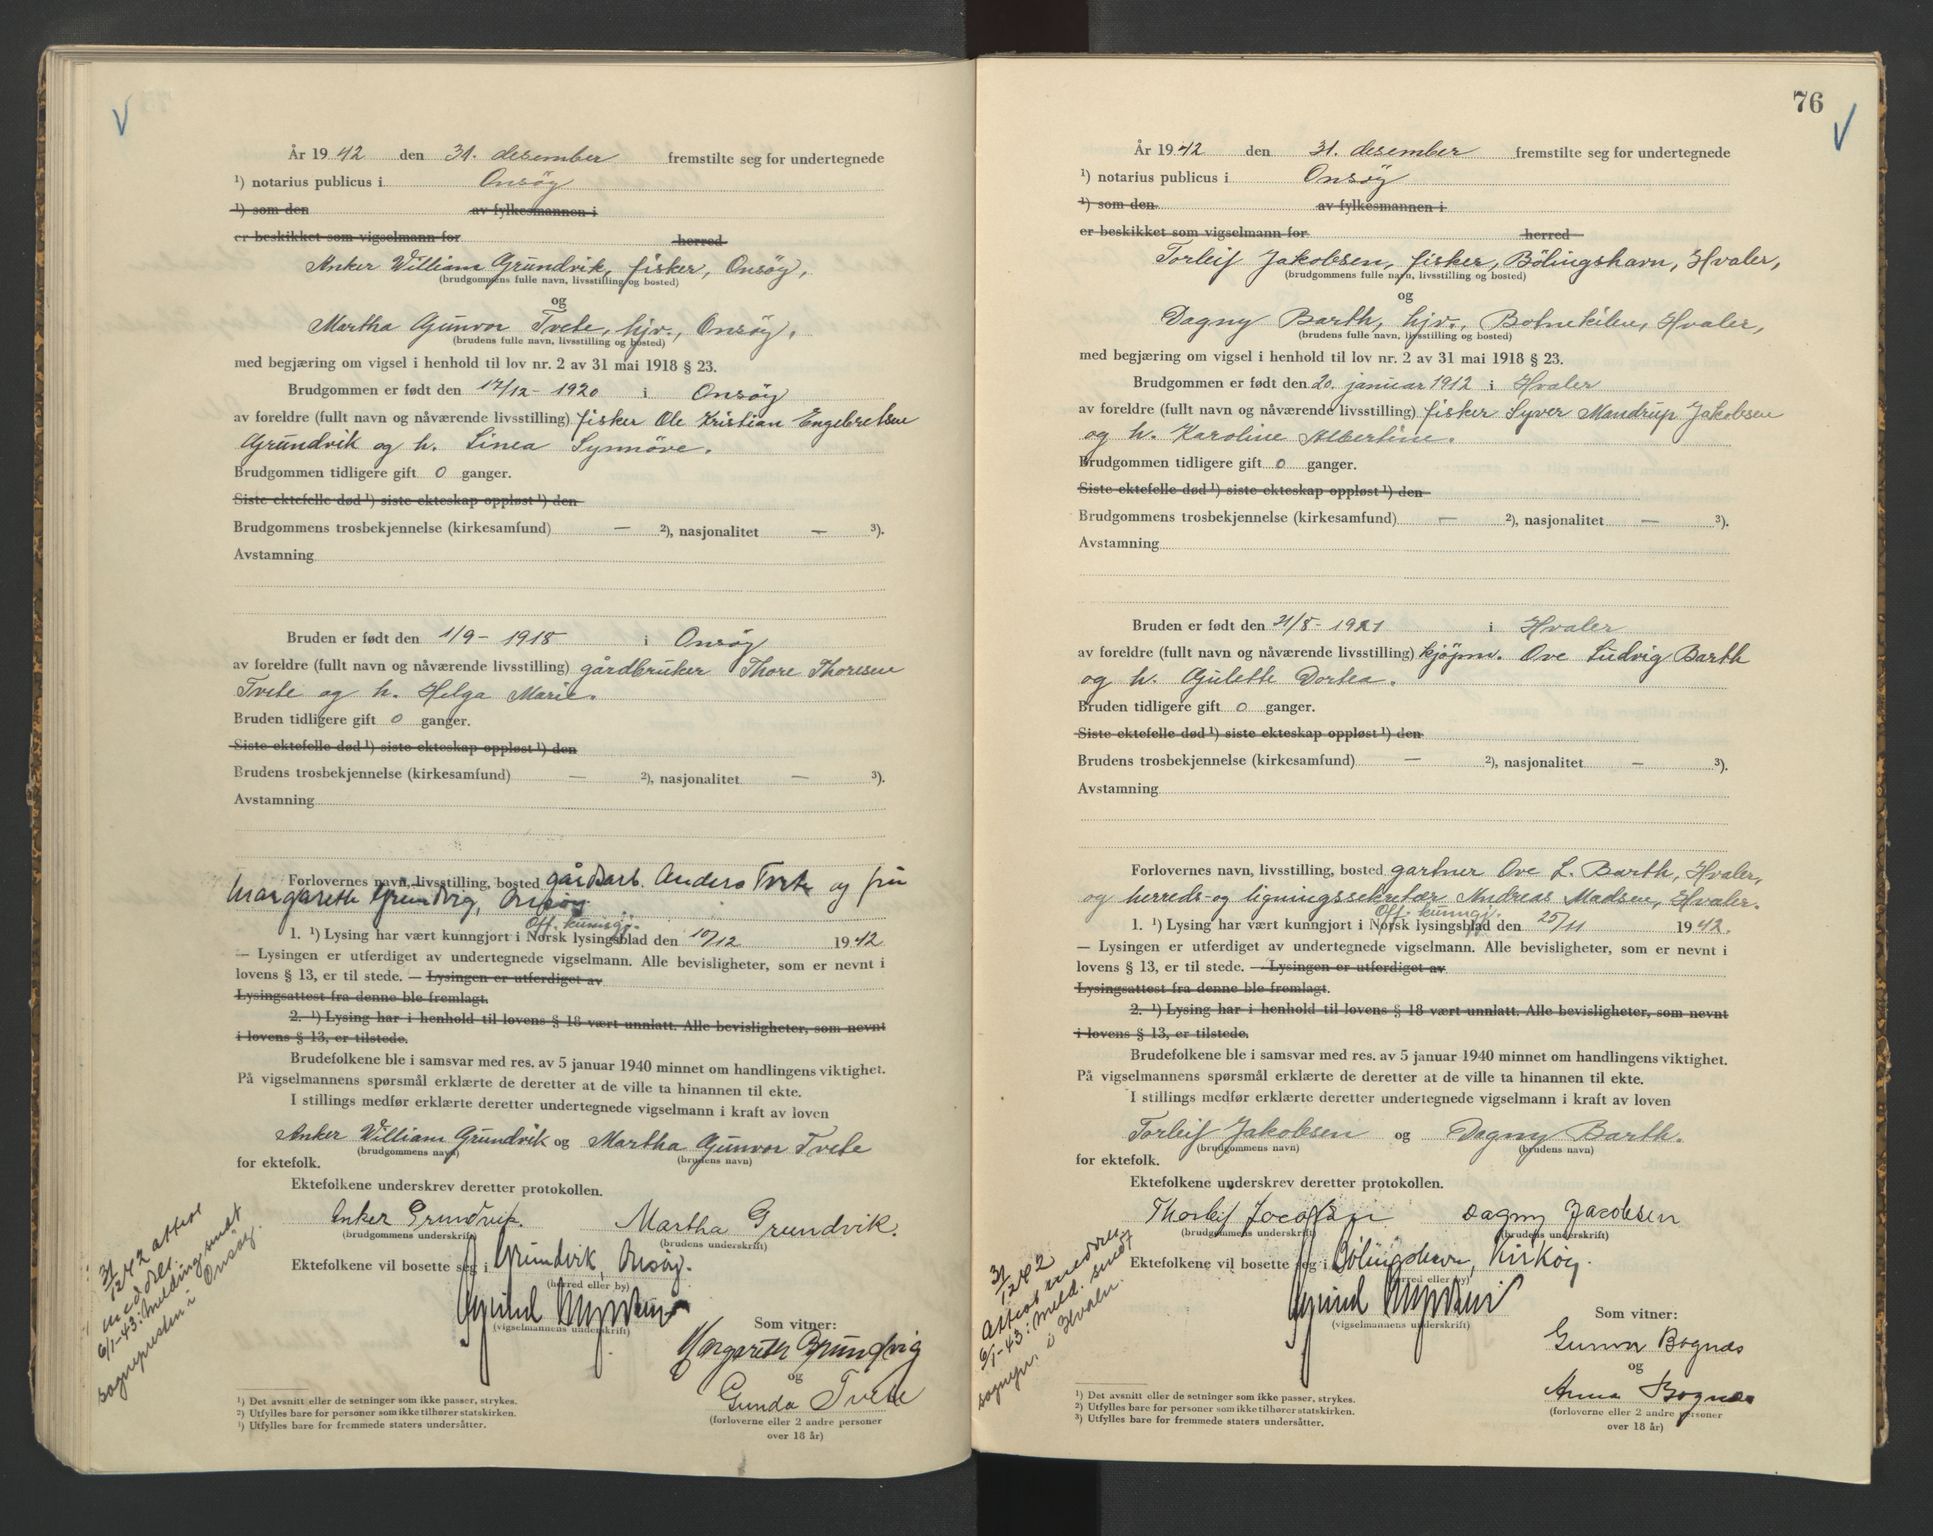 År 1942 den 31. desember fremstilte seg for undertegnede
¹) notarius publicus i Onsöy
¹) som den av fylkesmannen i
er beskikket som vigselmann for herred
Anker William Grundvik, fisker, Onsöy,
(brudgommens fulle navn, livsstilling og bosted)
og
Martha Gunvor Tvete, hjv., Onsöy,
(brudens fulle navn, livsstilling og bosted)
med begjæring om vigsel i henhold til lov nr. 2 av 31 mai 1918 § 23.
Brudgommen er født den 17/12 - 1920 i Onsöy
av foreldre (fullt navn og nåværende livsstilling) fisker Ole Kristian Engebretsen
Grundvik og h. Linea Synnöve.
Brudgommen tidligere gift 0 ganger.
Siste ektefelle død ¹) siste ekteskap oppløst ¹) den
Brudgommens trosbekjennelse (kirkesamfund) — ²), nasjonalitet — ³).
Avstamning
Bruden er født den 1/9 - 1918 i Onsöy
av foreldre (fullt navn og nåværende livsstilling) gårdbruker Thore Thoresen
Tvete og h. Helga Marie.
Bruden tidligere gift 0 ganger.
Siste ektefelle død ¹) siste ekteskap oppløst ¹) den
Brudens trosbekjennelse (kirkesamfund) — ²), nasjonalitet — ³).
Avstamning
Forlovernes navn, livsstilling, bosted gårdsarb. Anders Tvete og fru
Margareth Grundvig, Onsøy
Off. kunngj.
1. ¹) Lysing har vært kunngjort i Norsk lysingsblad den 10/12 1942
— Lysingen er utferdiget av undertegnede vigselmann. Alle bevisligheter, som er nevnt i
lovens § 13, er til stede. — Lysingen er utferdiget av
Lysingsattest fra denne ble fremlagt.
2. ¹) Lysing har i henhold til lovens § 18 vært unnlatt. Alle bevisligheter, som nevnt
i lovens § 13, er tilstede.
Brudefolkene ble i samsvar med res. av 5 januar 1940 minnet om handlingens viktighet.
På vigselmannens spørsmål erklærte de deretter at de ville ta hinannen til ekte.
I stillings medfør erklærte deretter undertegnede vigselmann i kraft av loven
Anker William Grundvik og Martha Gunvor Tvete
(brudgommens navn) (brudens navn)
for ektefolk.
Ektefolkene underskrev deretter protokollen.
Anker Grundvik. Martha Grundvik.
(brudgommens underskrift) (brudens underskrift)
Ektefolkene vil bosette seg i Grundvik, Onsøy.
(herred eller by)
(vigselmannens underskrift)
Som vitner:
Margareth Grundvig
og
Gunda Tvete
(forloverne eller 2 andre personer
over 18 år)
31/12 42 attest
meddelt.
6/1-43: Melding sendt
sognepresten i Onsöy.
¹) Det avsnitt eller de setninger som ikke passer, strykes.
²) Utfylles bare for personer som ikke tilhører statskirken.
³) Utfylles bare for fremmede staters undersåtter.
76
År 1942 den 31. desember fremstilte seg for undertegnede
¹) notarius publicus i Onsöy
¹) som den av fylkesmannen i
er beskikket som vigselmann for herred
Torleif Jakobsen, fisker, Bölingshavn, Hvaler,
(brudgommens fulle navn, livsstilling og bosted)
og
Dagny Barth, hjv., Botnekilen, Hvaler,
(brudens fulle navn, livsstilling og bosted)
med begjæring om vigsel i henhold til lov nr. 2 av 31 mai 1918 § 23.
Brudgommen er født den 20. januar 1912 i Hvaler
av foreldre (fullt navn og nåværende livsstilling) fisker Syver Mandrup Jakobsen
og h. Karoline Albertine.
Brudgommen tidligere gift 0 ganger.
Siste ektefelle død ¹) siste ekteskap oppløst ¹) den
Brudgommens trosbekjennelse (kirkesamfund) — ²), nasjonalitet — ³).
Avstamning
Bruden er født den 21/8 - 1921 i Hvaler
av foreldre (fullt navn og nåværende livsstilling) kjöpm. Ove Ludvig Barth
og h. Gulette Dortea.
Bruden tidligere gift 0 ganger.
Siste ektefelle død ¹) siste ekteskap oppløst ¹) den
Brudens trosbekjennelse (kirkesamfund) — ²), nasjonalitet — ³).
Avstamning
Forlovernes navn, livsstilling, bosted gartner Ove L. Barth, Hvaler,
og herreds- og ligningssekretær Andreas Madsen, Hvaler.
Off. kunngj.
1. ¹) Lysing har vært kunngjort i Norsk lysingsblad den 25/11 1942.
— Lysingen er utferdiget av undertegnede vigselmann. Alle bevisligheter, som er nevnt i
lovens § 13, er til stede. — Lysingen er utferdiget av
Lysingsattest fra denne ble fremlagt.
2. ¹) Lysing har i henhold til lovens § 18 vært unnlatt. Alle bevisligheter, som nevnt
i lovens § 13, er tilstede.
Brudefolkene ble i samsvar med res. av 5 januar 1940 minnet om handlingens viktighet.
På vigselmannens spørsmål erklærte de deretter at de ville ta hinannen til ekte.
I stillings medfør erklærte deretter undertegnede vigselmann i kraft av loven
Torleif Jakobsen og Dagny Barth.
(brudgommens navn) (brudens navn)
for ektefolk.
Ektefolkene underskrev deretter protokollen.
Thorleif Jacobsen Dagny Jacobsen
(brudgommens underskrift) (brudens underskrift)
Ektefolkene vil bosette seg i Bölingshavn, Kirkøy.
(herred eller by)
(vigselmannens underskrift)
Som vitner:
Gunvor Bognæs
og
Anna Bognæs
(forloverne eller 2 andre personer
over 18 år)
31/12 42
Attest meddelt
6/1-43: Meld. sendt
sognepr. i Hvaler.
¹) Det avsnitt eller de setninger som ikke passer, strykes.
²) Utfylles bare for personer som ikke tilhører statskirken.
³) Utfylles bare for fremmede staters undersåtter.